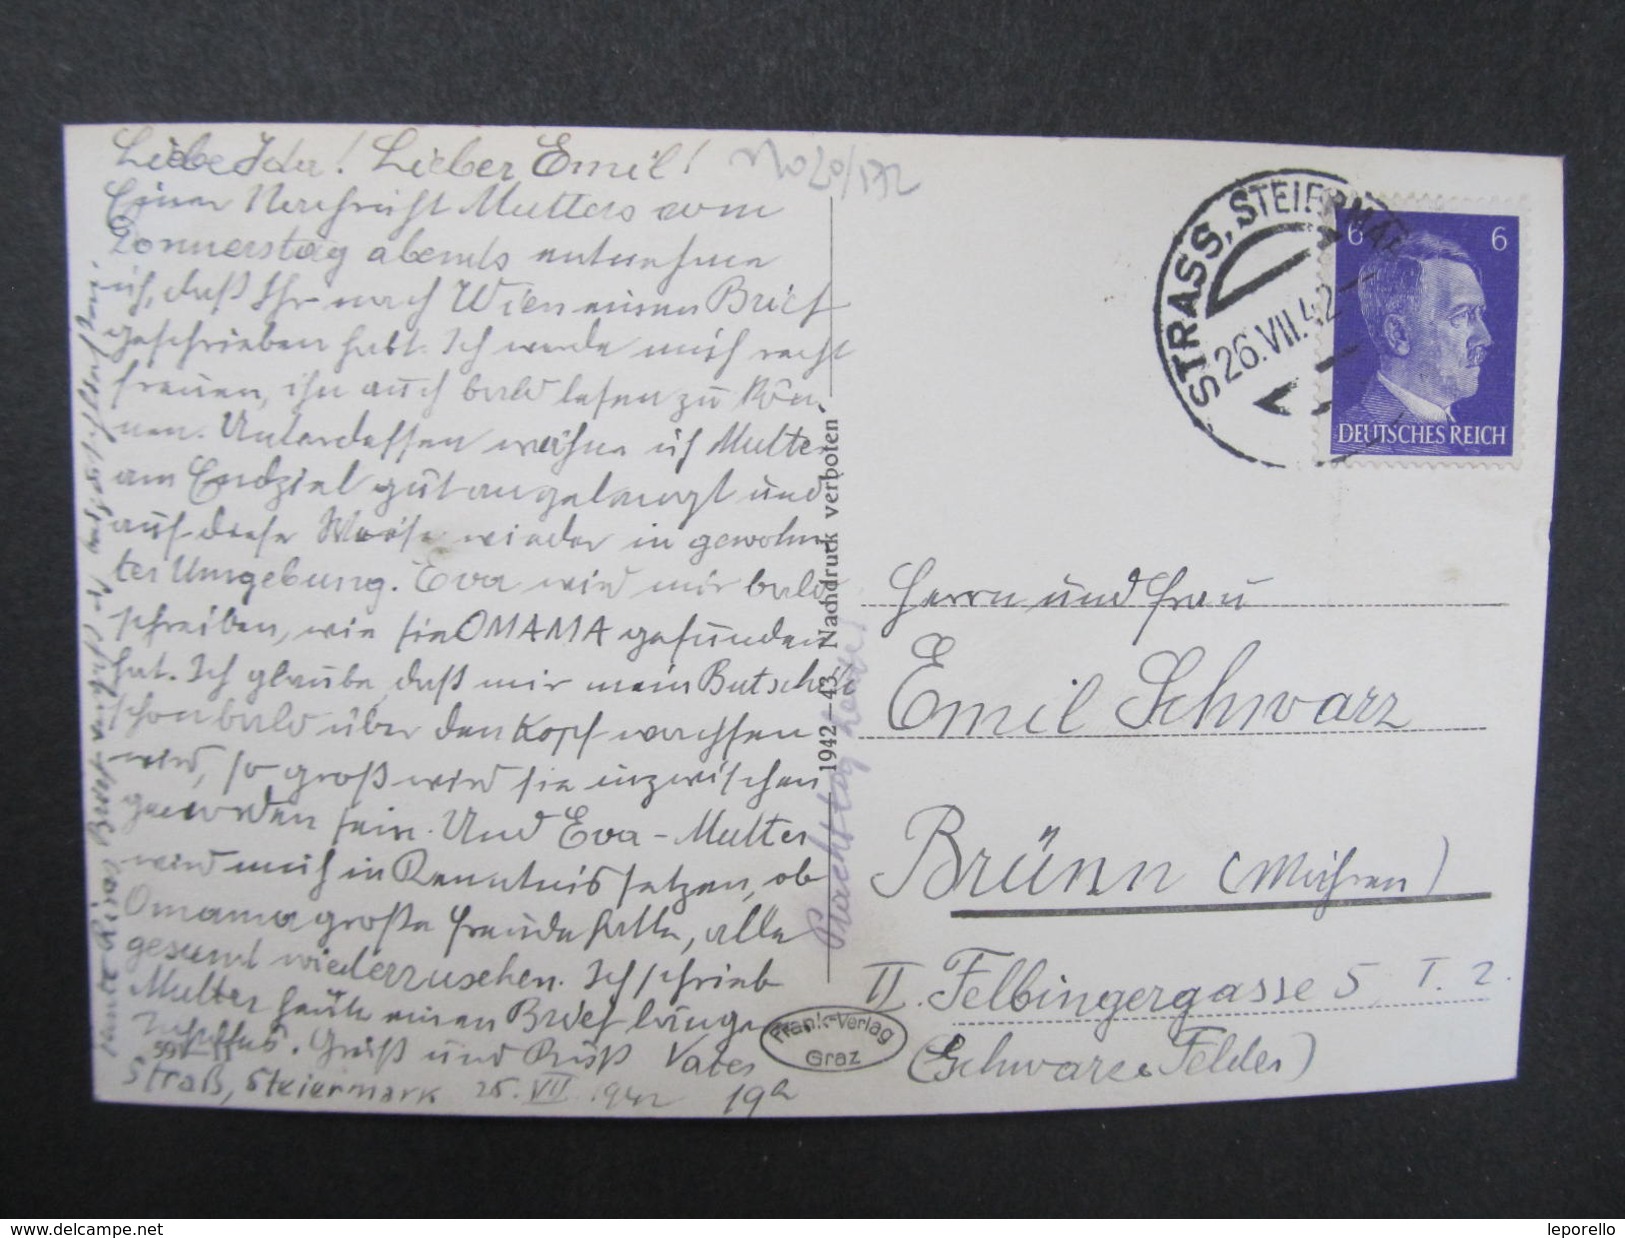 Liebe Ida! Lieber Emil!
No 20/172
Einer Nachricht Mutters vom
Donnerstag abends entnehme
ich, daß Ihr nach Wien einen Brief
geschrieben habt. Ich werde mich recht
freuen, ihn auch bald lesen zu kön-
nen. Unterdessen wähne ich Mutter
am Endziel gut angelangt und
auf diese Weise wieder in gewohn
ter Umgebung. Eva wird mir bald
schreiben, wie sie OMAMA gefunden
hat. Ich glaube, daß mir mein Butschi
schon bald über den Kopf wachsen
wird, so groß wird sie inzwischen
geworden sein. Und Eva-Mutter
wird mich in Kenntnis setzen, ob
Omama große Freude hatte, alle
gesund wiederzusehen. Ich schrieb
Mutter heute einen Brief länge
Inhaltes. Gruß und Kuß Vater
Straß, Steiermark 25. VII. 942 19h
1942–43 Nachdruck verboten
Frank-Verlag
Graz
STRASS, STEIERMARK
26.VII.42
6 6
DEUTSCHES REICH
Herrn und Frau
Emil Schwarz
Brünn (Mähren)
II. Felbingergasse 5, T. 2.
(Schwarze Felder)
leporello